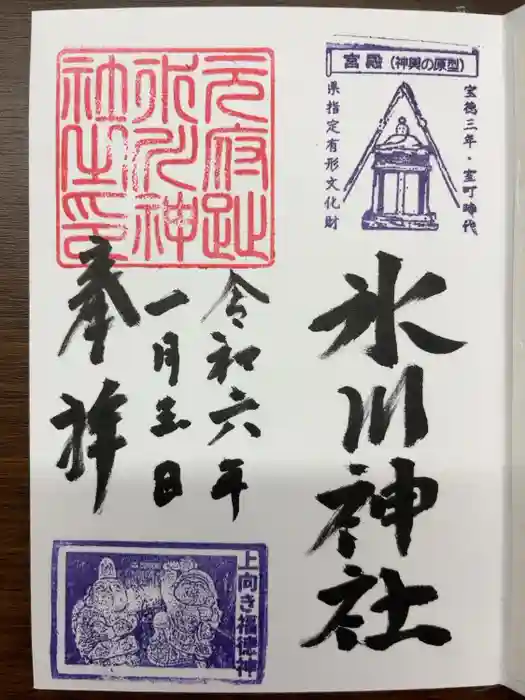 宮殿(神輿の原型)
宝徳三年・室町時代
県指定有形文化財
氷川神社
令和六年
一月三日
奉拝
元府趾
氷川神
社之印
上向き福徳神